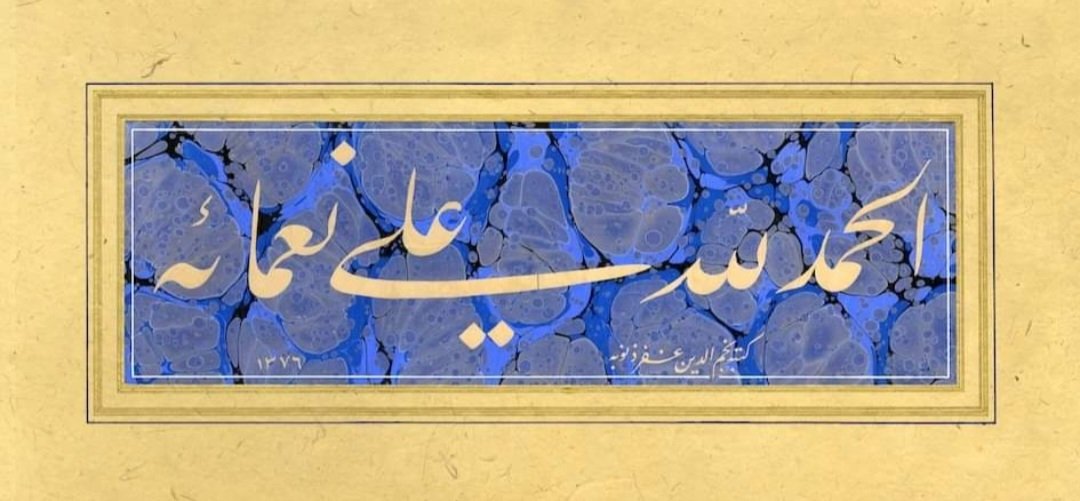 الحمد لله علی نعمائه
کتبه نجم الدین غفر ذنوبه
١٣٧٦